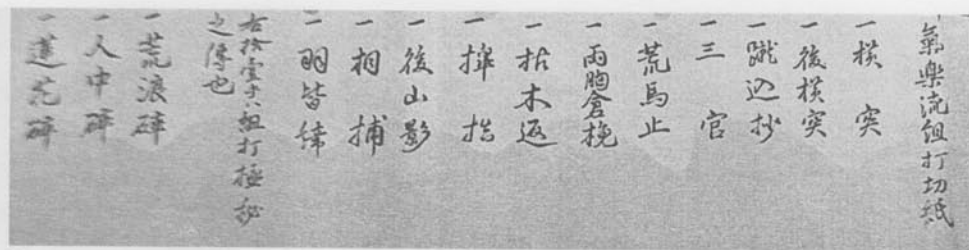 氣楽流組打切紙
一橫突
一後橫突
一蹴込抄
一三官
一荒馬止
一両胸倉挽
一枯木返
一搾指
一後山影
一相捕
一羽皆締
右拾壹ヶ組打極秘
之傳也
一荒浪碎
一人中碎
一蓮花碎